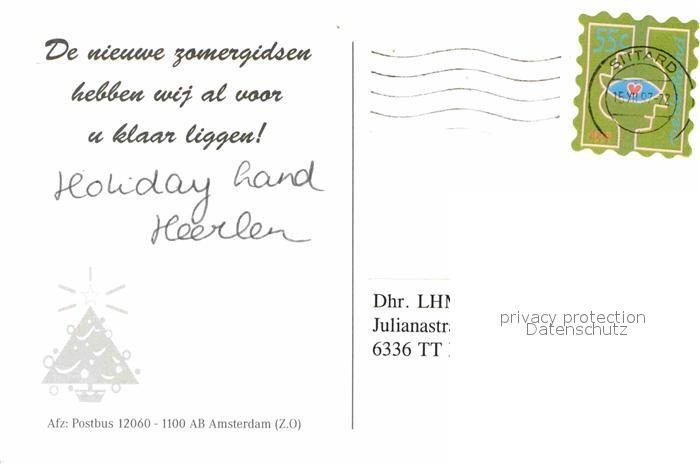 De nieuwe zomergidsen
hebben wij al voor
u klaar liggen!
Holiday land
Heerlen
Afz: Postbus 12060 - 1100 AB Amsterdam (Z.O)
55c
SITTARD
Dhr. LHM
Julianastra
6336 TT
privacy protection
Datenschutz